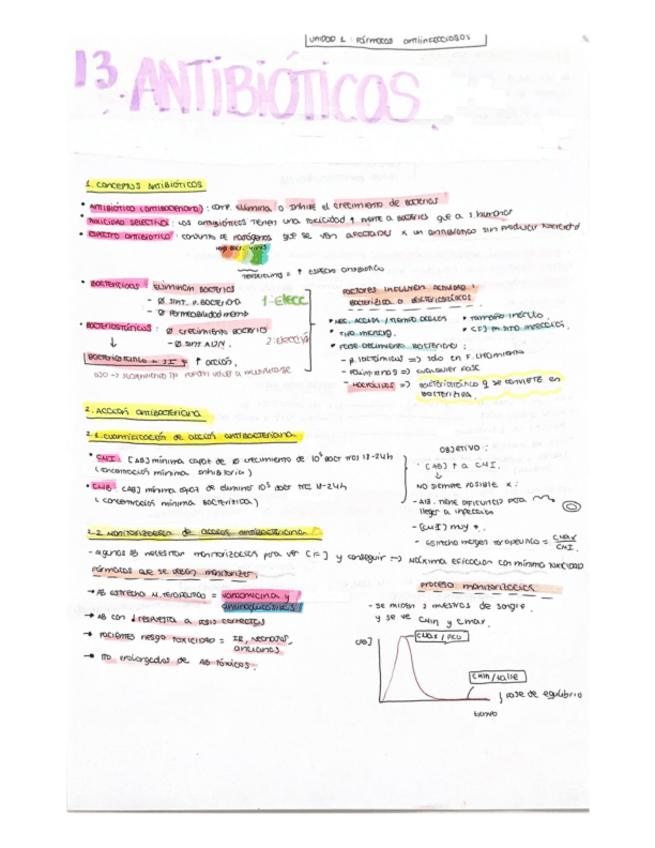 UNIDAD 2 : FÁRMACOS ANTIINFECCIOSOS
13. ANTIBIÓTICOS
1. CONCEPTOS ANTIBIÓTICOS
• ANTIBIÓTICO (antibacteriano) : comp. elimina o inhibe el crecimiento de bacterias
• TOXICIDAD SELECTIVA : los antibióticos tienen una toxicidad ↑ frente a bacterias que a s. humanos
• ESPECTRO ANTIBIÓTICO : conjunto de patógenos que se ven afectados x un antibiótico sin producir toxicidad
= ↑ espectro antibiótico
• BACTERICIDAS : ELIMINAN BACTERIAS
- Ø SINT. P. BACTERIANA
- Ø PERMEABILIDAD memb
1ª ELECC.
• BACTERIOSTÁTICOS : Ø crecimiento bacterias
- Ø SINT. ADN.
2ª ELECCIÓN
↓
↑ acción.
FACTORES INFLUYEN ACTIVIDAD
BACTERICIDA O BACTERIOSTÁTICOS.
• MEC. ACCIÓN / TIEMPO ACCIÓN
• TAMAÑO INÓCULO.
• TIPO MICROORG.
• FASE CRECIMIENTO BACTERIANO :
- β lactámicos => solo en F. crecimiento
=> cualquier fase
- MACRÓLIDOS => bacteriostático q se convierte en
bactericida.
2. ACCIÓN ANTIBACTERIANA
2.1. CUANTIFICACIÓN DE ACCIÓN ANTIBACTERIANA
• CMI : [AB] mínima capaz de Ø crecimiento de 10⁵ bact tras 18-24h
(concentración mínima inhibitoria)
• CMB : [AB] mínima capaz de eliminar 10⁵ bact tras 18-24h
(concentración mínima bactericida)
OBJETIVO :
· [AB] ↑ a CMI.
↓
NO SIEMPRE POSIBLE X :
- AB. tiene dificultad para
llegar a infección
- [CMI] muy ↑.
- estrecho margen terapéutico = CMAX / CMI.
2.2 Monitorización de acción antibacteriana
- algunos AB necesitan monitorización para ver [ ] y conseguir --> Máxima eficacia con mínima toxicidad
Fármacos que se deben monitorizar.
→ AB estrecho M. terapéutico = vancomicina y
aminoglucósidos
→ AB con ↓ respuesta a dosis correctas
→ PACIENTES RIESGO TOXICIDAD = IR, neonatos,
ancianos
→ TTO prolongados de AB tóxicos.
PROCESO monitorización
- se miden 2 muestras de sangre
y se ve CMIN y CMAX.
[AB]
CMAX / PICO
CMIN / valle
fase de equilibrio
tiempo